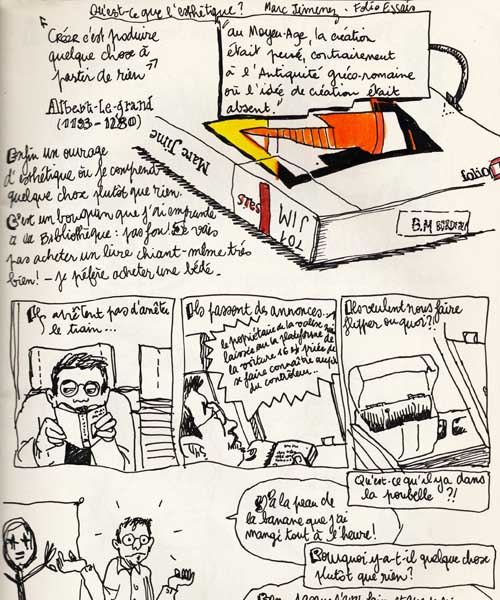 Qu'est-ce que l'esthétique ? Marc Jimenez - Folio Essais
"Créer c'est produire
quelque chose à
partir de rien"
Albert-le-grand
(1193-1280)
"au Moyen-Age, la création
était pensé, contrairement
à l'Antiquité gréco-romaine
où l'idée de création était
absent."
Marc Jime
folio
ESSAIS
JIM
701
B.M
Enfin un ouvrage
d'esthétique où je comprend
quelque chose plutôt que rien.
C'est un bouquin que j'ai emprunté
à la Bibliothèque : pas fou! Je vais
pas acheter un livre chiant-même très
bien! - je préfère acheter une bédé.
Ils arrêtent pas d'arrêter
le train...
Ils passent des annonces...
le propriétaire de la valise
laissée sur la plateforme de
la voiture 16 est prié de
se faire connaître auprès
du contrôleur...
Ils veulent nous faire
flipper ou quoi?!
Qu'est-ce qu'il y a dans
la poubelle ?!
Y'a la peau de
la banane que j'ai
mangé tout à l'heure!
Pourquoi y-a-t-il quelque chose
plutôt que rien?